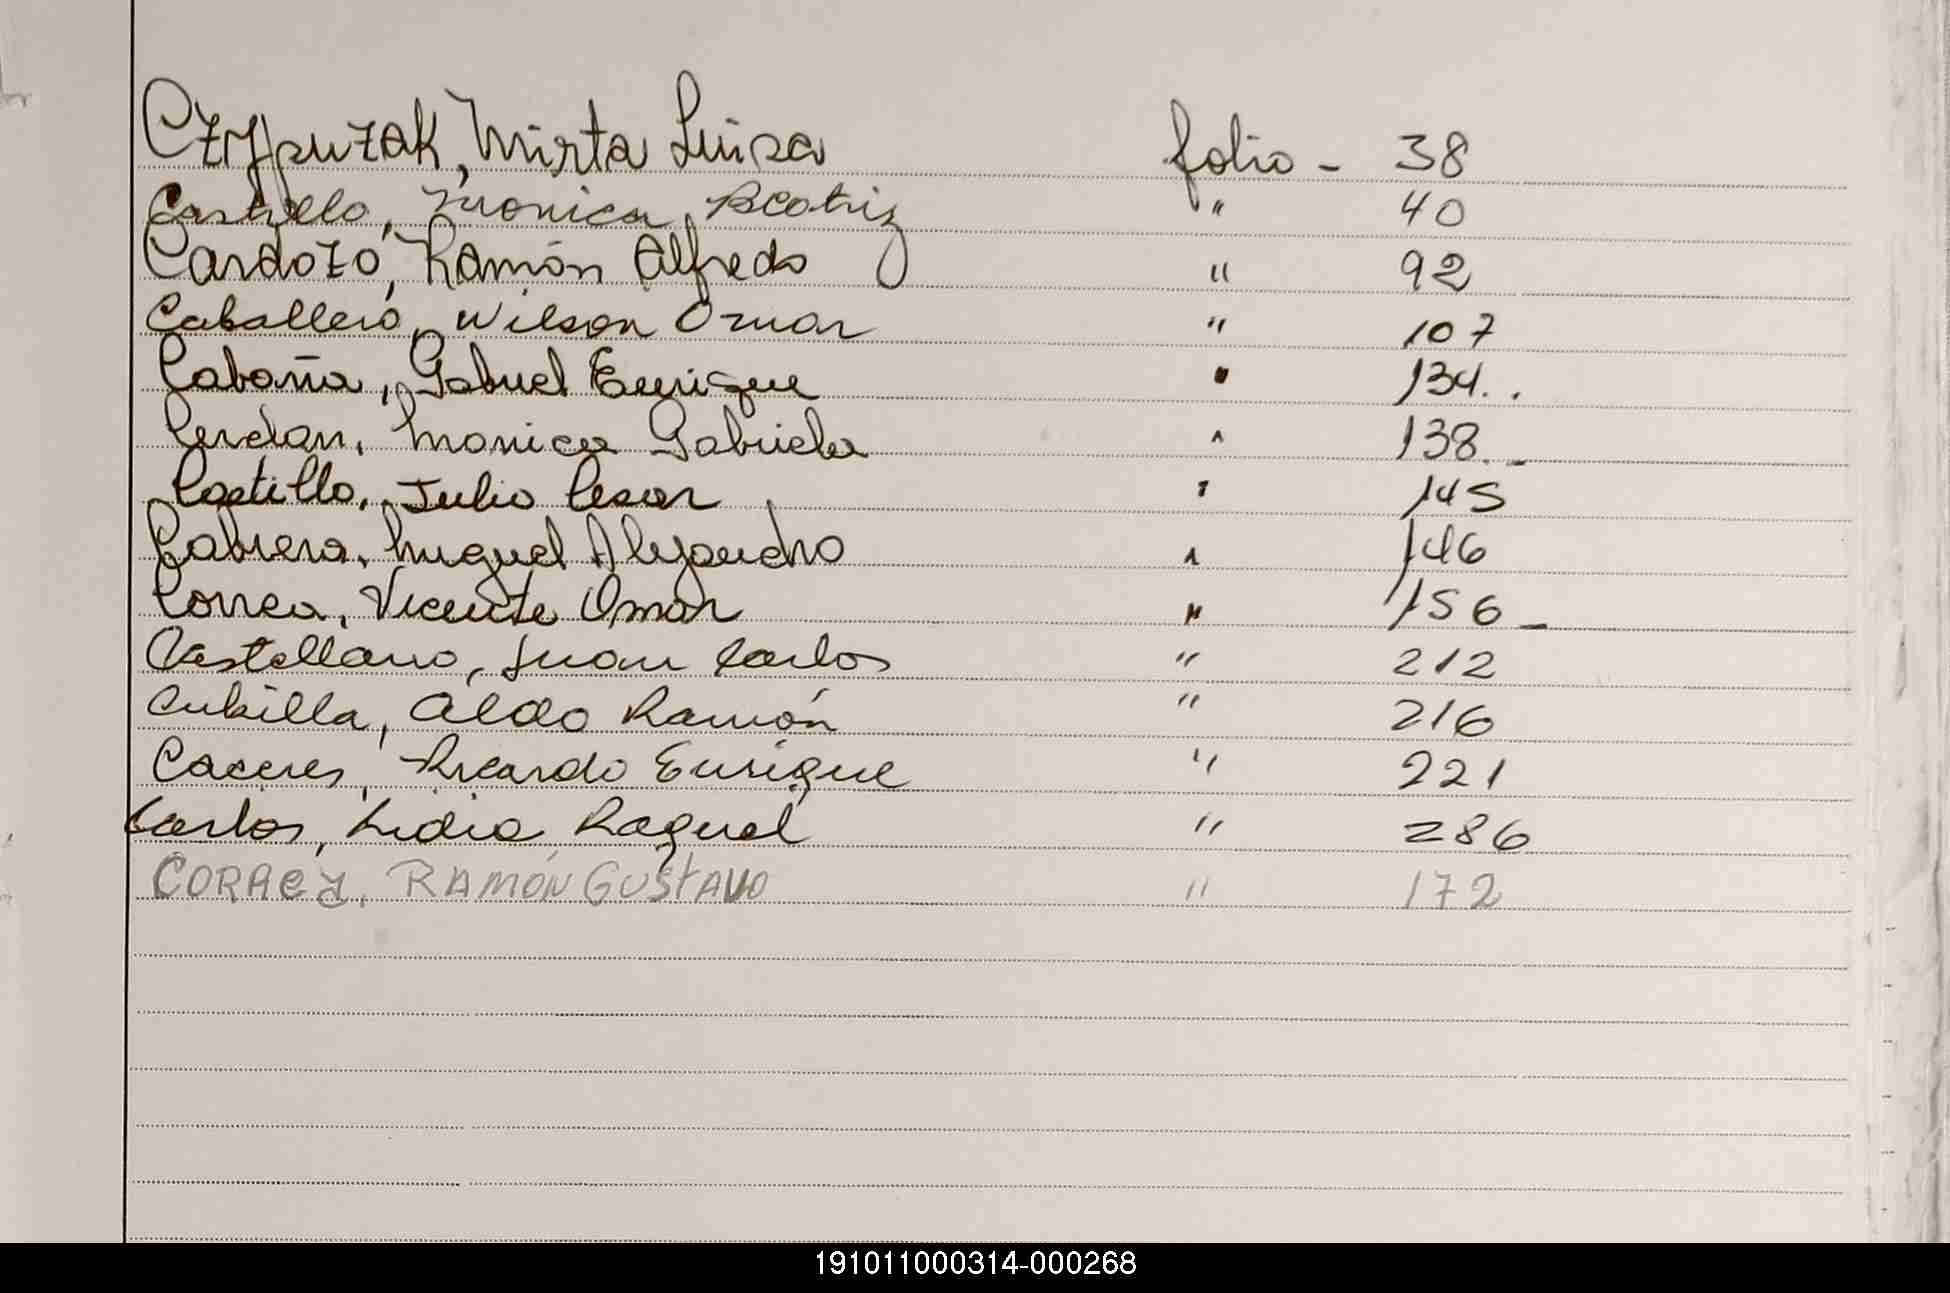 Czypurzak, Mirta Luisa folio - 38
Castillo, Monica Beatriz " 40
Cardozo, Ramón Alfredo " 92
Caballero, Wilson Omar " 107
Cabaña, Gabriel Enrique " 134..
Cerdan, Monica Gabriela " 138.-
Castillo, Julio Cesar " 145
Cabrera, Miguel Alejandro " 146
Correa, Vicente Omar " 156 -
Castellano, Juan Carlos " 212
Cubilla, Aldo Ramón " 216
Caceres, Ricardo Enrique " 221
Carlos, Lidia Raquel " 286
RAMÓN GUSTAVO " 172
191011000314-000268